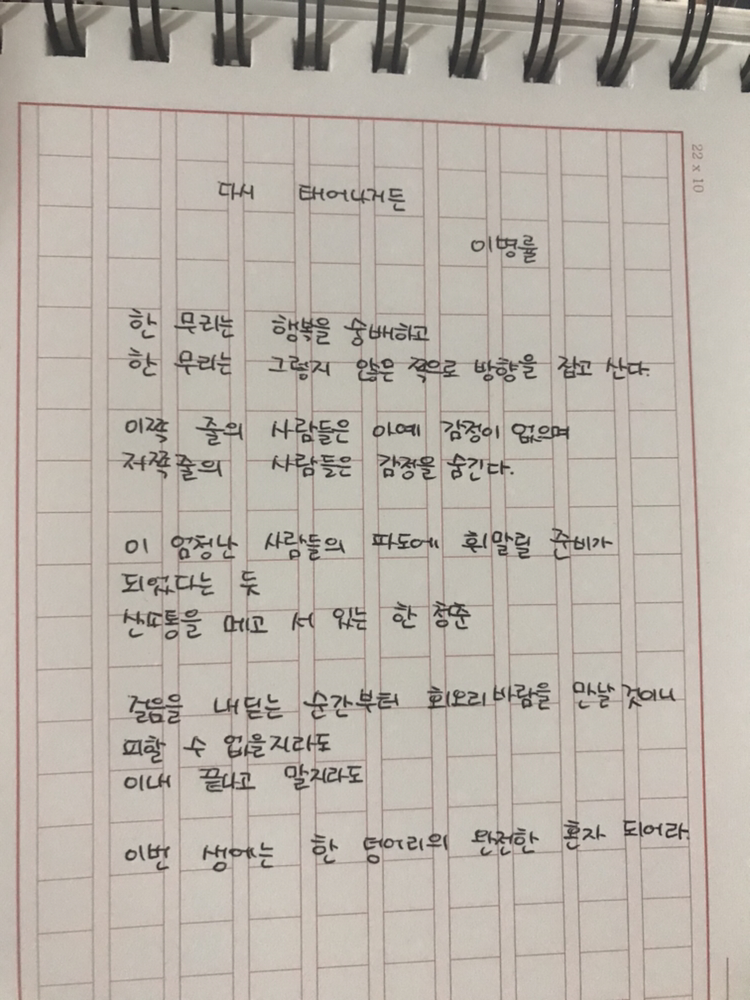 22 x 10
다시 태어나거든
이병률
한 무리는 행복을 숭배하고
한 무리는 그렇지 않은 쪽으로 방향을 잡고 산다.
이쪽 줄의 사람들은 아예 감정이 없으며
저쪽 줄의 사람들은 감정을 숨긴다.
이 엄청난 사람들의 파도에 휘말릴 준비가
되었다는 듯
산또통을 메고 서 있는 한 청춘
걸음을 내딛는 순간부터 회오리바람을 만날 것이니
피할 수 없을지라도
이내 끝나고 말지라도
이번 생에는 한 덩어리의 완전한 혼자 되어라.